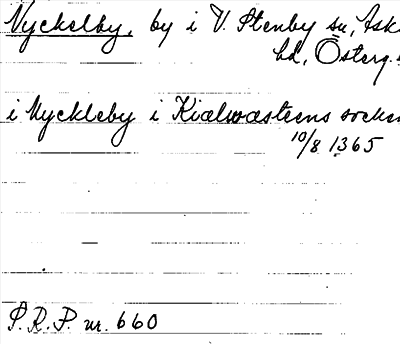 Nyckelby, by i V. Stenby sn, Ask
hd, Österg.
i Nyckleby i Kialwasteens socken
10/8 1365
P.R.P. nr. 660